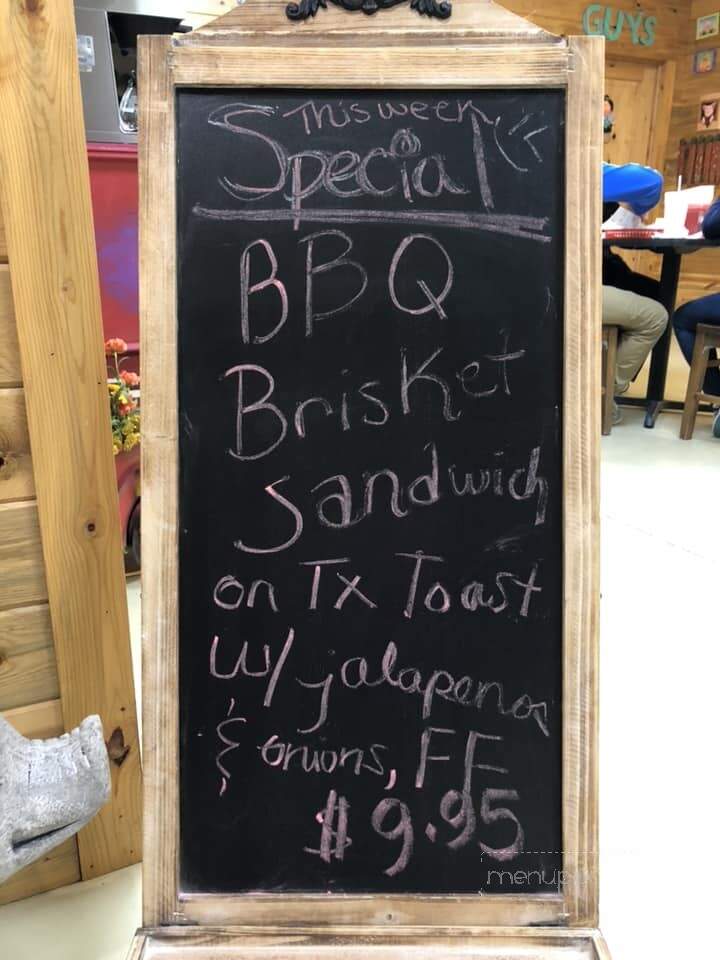 GUYS
This week
Special
BBQ
Brisket
Sandwich
on Tx Toast
w/ jalapenos
& onions, FF
$9.95